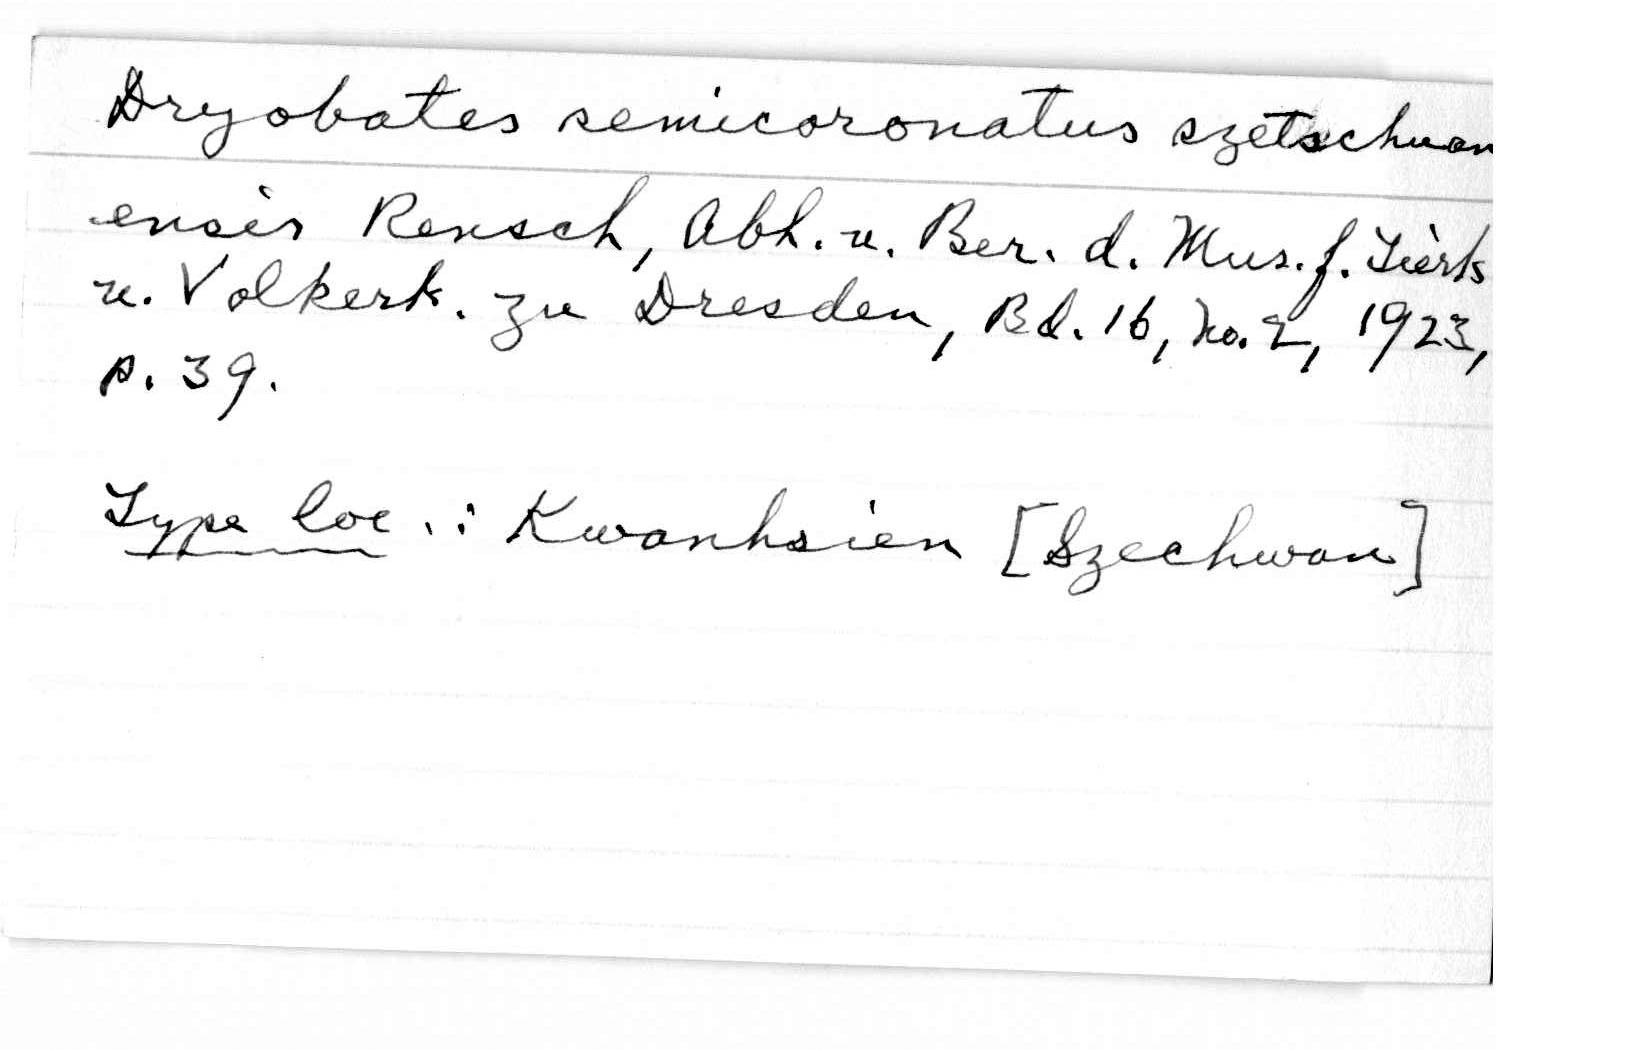 Dryobates semicoronatus szetschuan
ensis Rensch, Abh. u. Ber. d. Mus. f. Tierk
u. Volkerk. zu Dresden, Bd. 16, no. 2, 1923,
p. 39.
Type loc.: Kwanhsien [Szechwan]